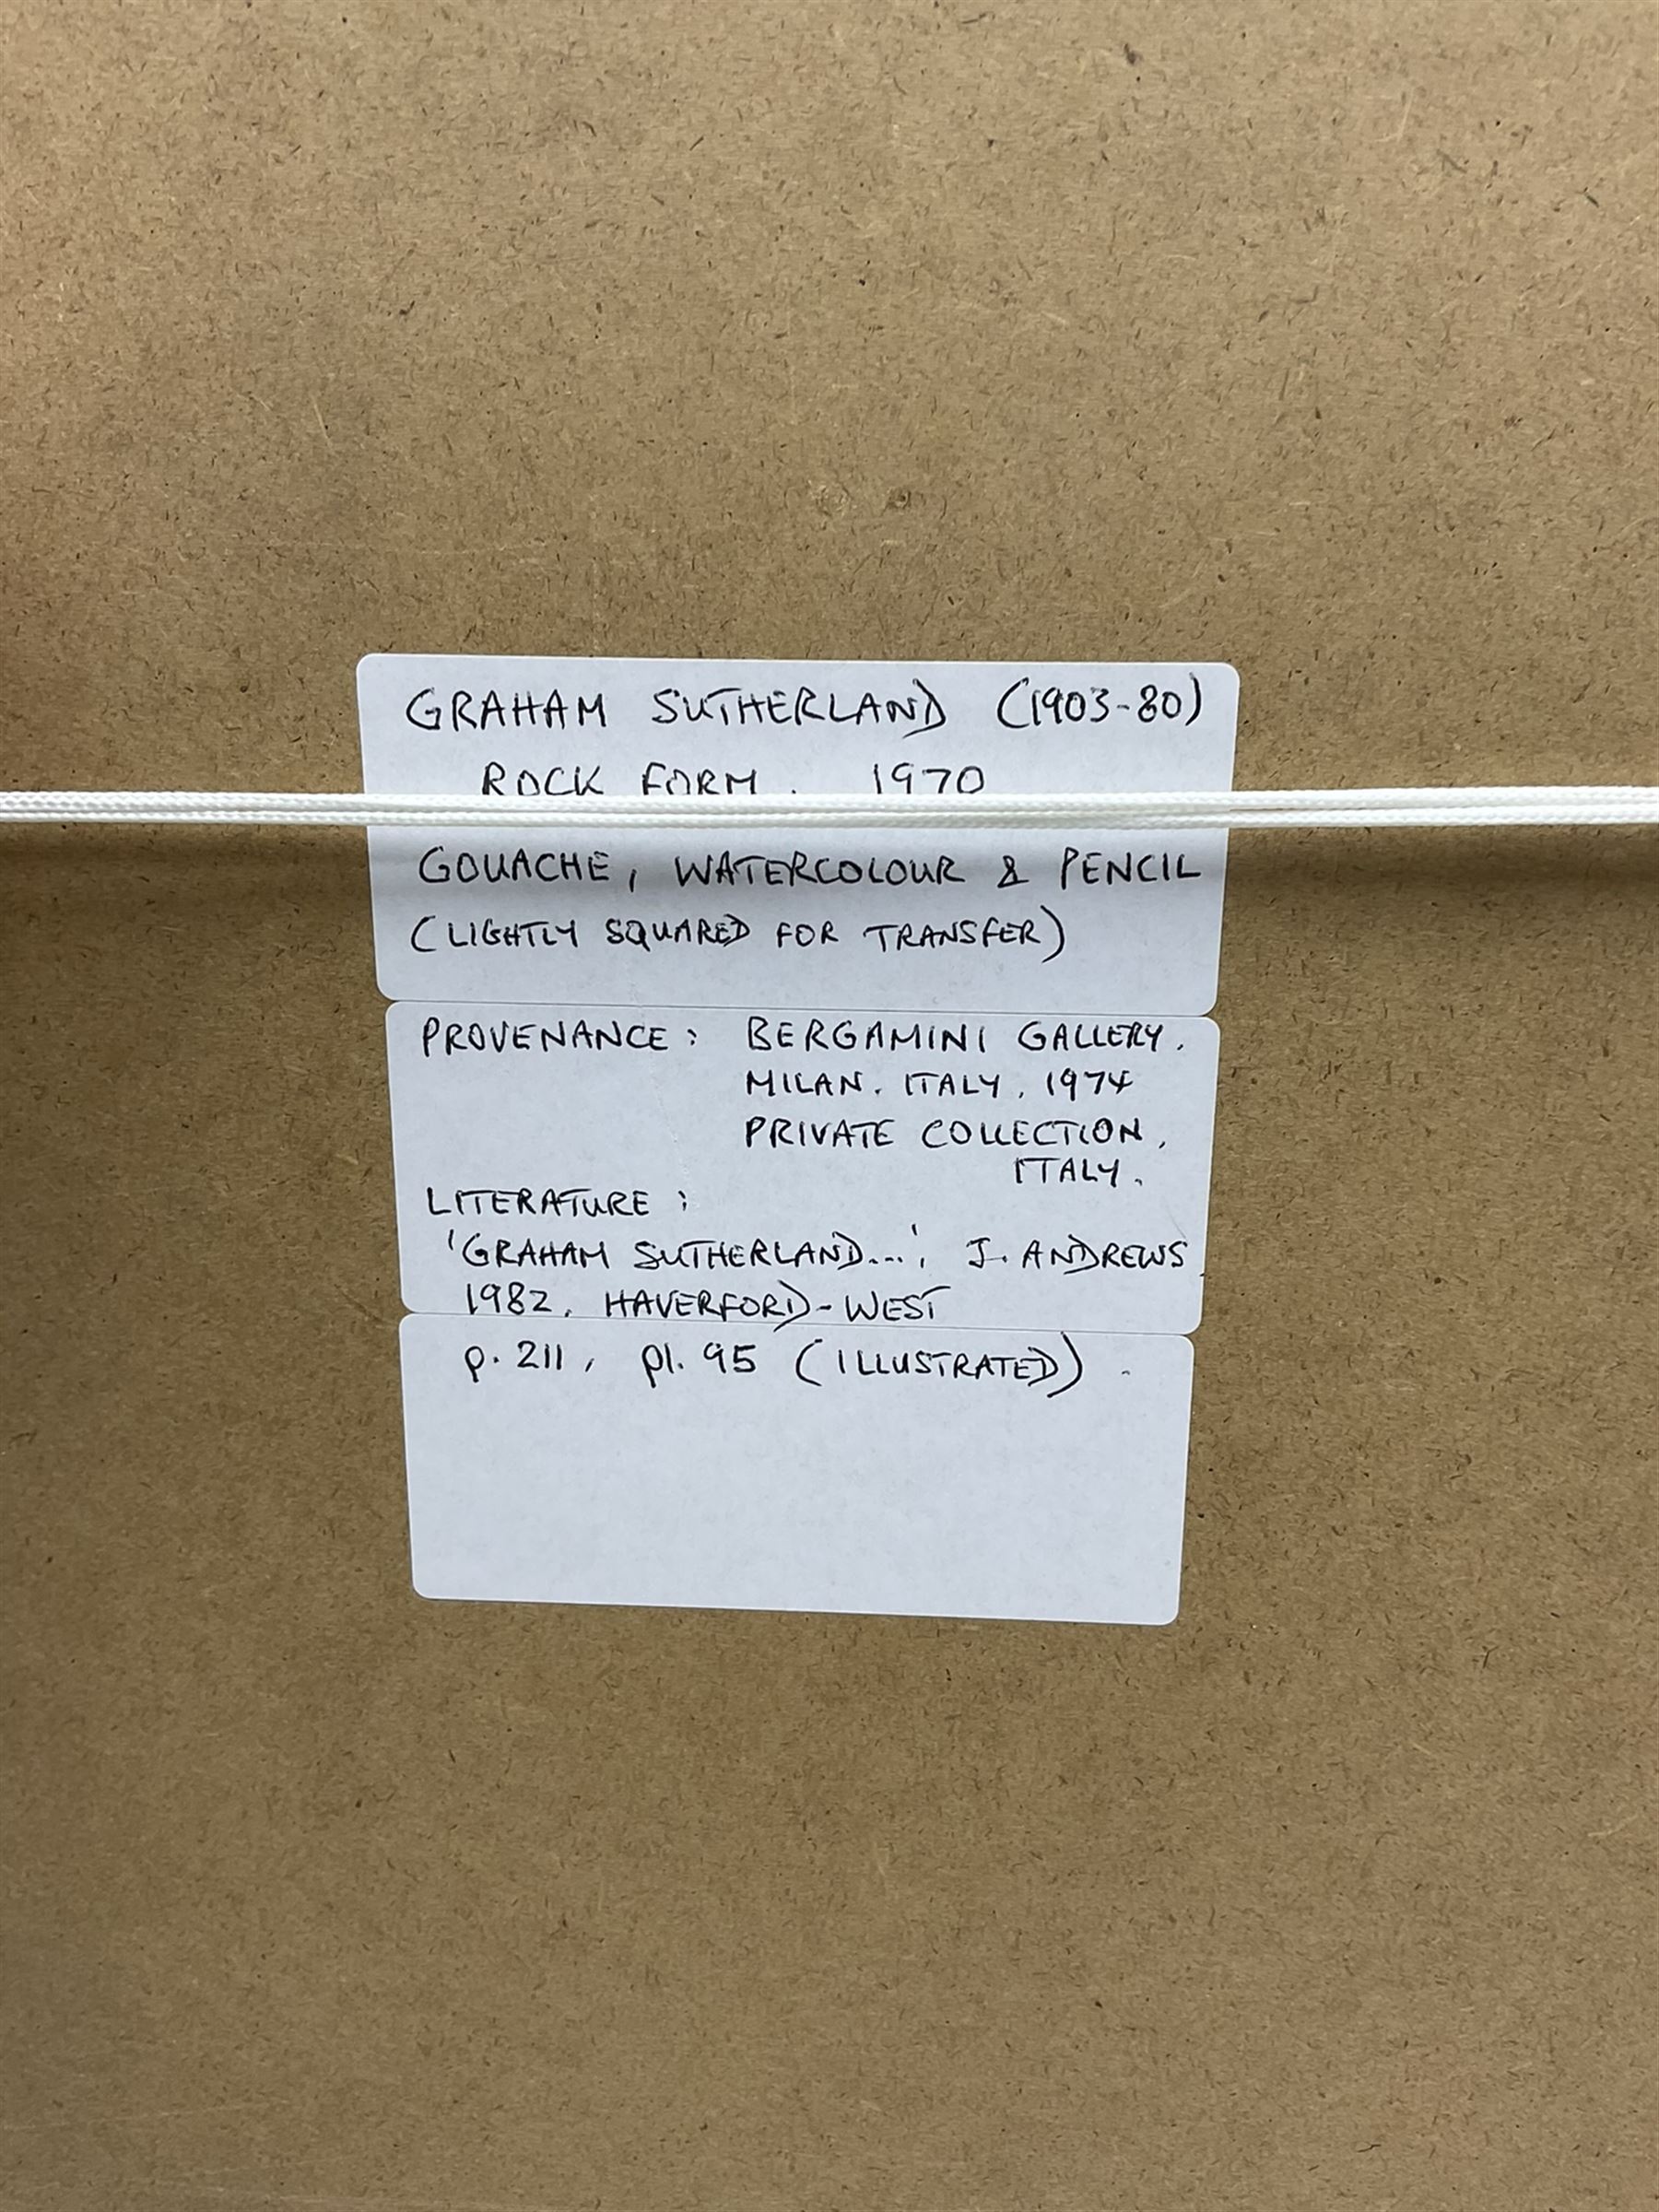 GRAHAM SUTHERLAND (1903-80)
ROCK FORM. 1970
GOUACHE, WATERCOLOUR & PENCIL
(LIGHTLY SQUARED FOR TRANSFER)
PROVENANCE: BERGAMINI GALLERY.
MILAN. ITALY, 1974
PRIVATE COLLECTION,
ITALY.
LITERATURE:
'GRAHAM SUTHERLAND...', J. ANDREWS
1982, HAVERFORD-WEST
p. 211, pl. 95 (ILLUSTRATED).